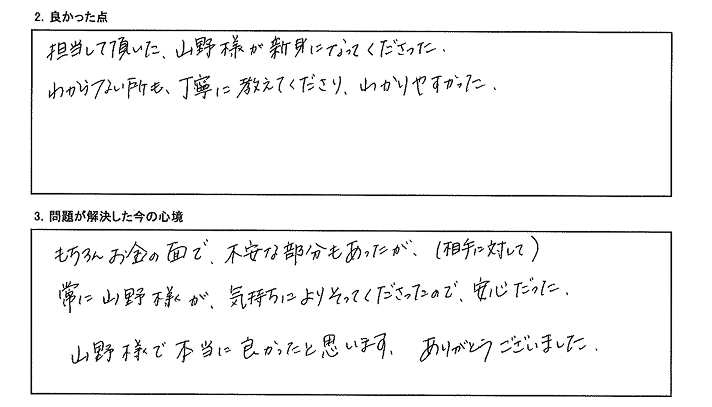 2. 良かった点
担当して頂いた、山野様が親身になってくださった.
わからない所も、丁寧に教えてくださり、わかりやすかった.
3. 問題が解決した今の心境
もちろんお金の面で、不安な部分もあったが、(相手に対して)
常に山野様が、気持ちによりそってくださったので、安心だった.
山野様で本当に良かったと思います. ありがとうございました.